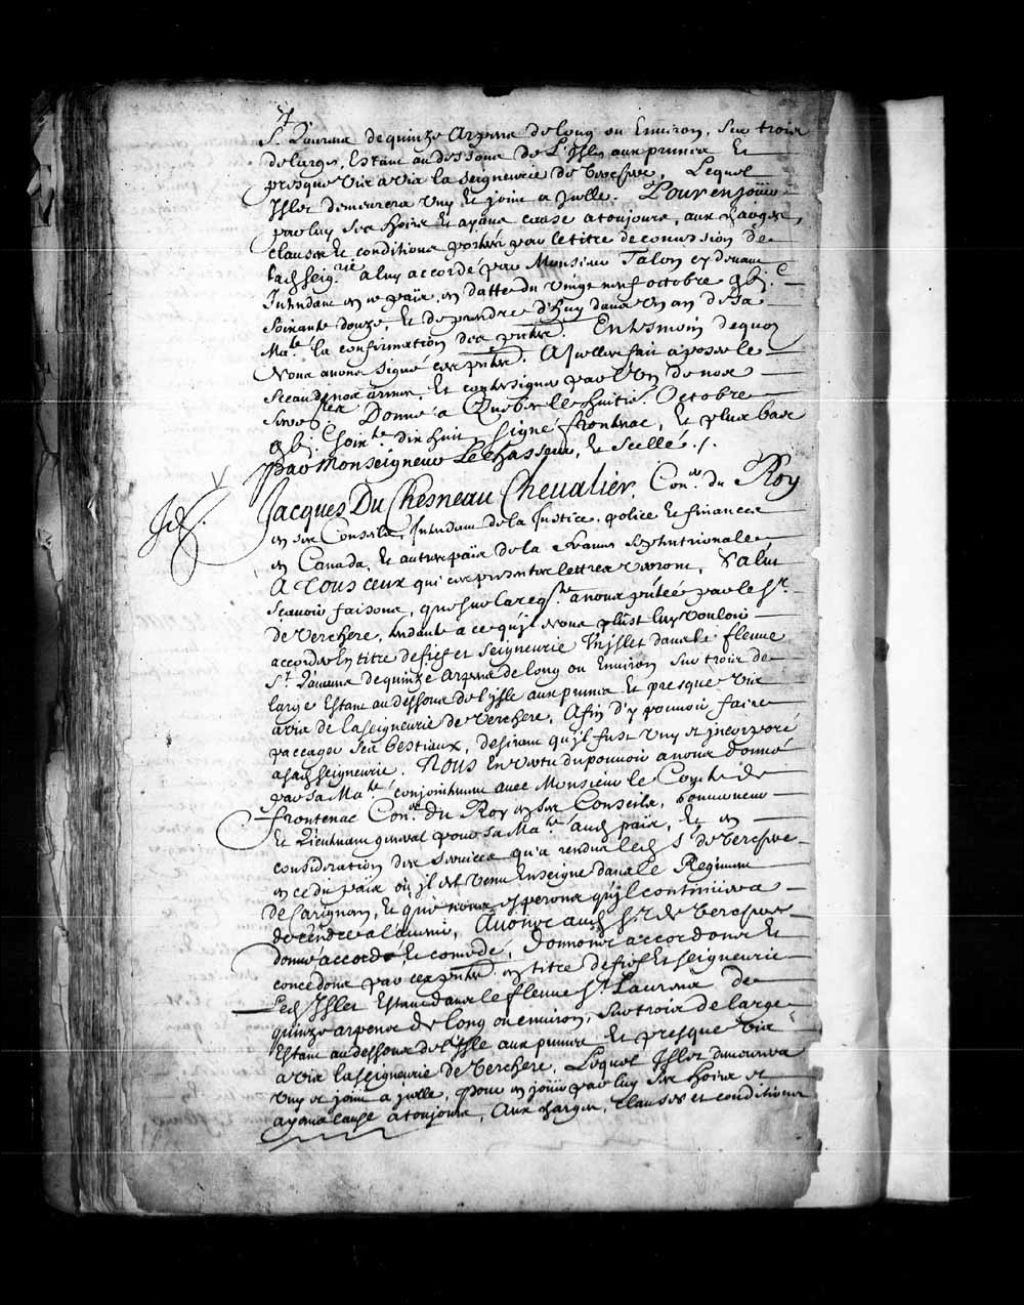 St. Laurens de quinze Arpens de long ou Environ, Sur trois
de large, Estant au dessous de L'Isle aux prunes Et
presque vis a vis la Seigneurie de Vercheres, Lequel
Islet demeurera Uny Et joint a Jcelle. Pour en joüir
par luy Ses hoirs Et ayans cause a toujours, aux charges,
clauses Et conditions portées par le titre de concession de
lad Seig.rie a luy accordé par Monsieur Talon cy devant
Intendant en ce païs, en datte du vingt neuf octobre gbj.C
Soixante douze, Et de prendre d'huy dans Un an de Sa
Ma.té la confirmation des p̄ntes. En tesmoin de quoy
Nous avons Signé ces p̄ntes, A Jcelles fait aposer le
Sceau de nos armes, Et contresigner par L'Un de nos
Secres. Donné a Quebec le huitie. Octobre
gbj.C Soix.te dix huit, Signé frontenac, Et plus bas
par Monseigneur Le Chasseur, Et Scellé./.
Jd.
Jacques Du Chesneau Chevalier, Con.er du Roy
en ses Conseils, Intendant de la Justice, police Et finances
en Canada, Et autres païs de la france Septentrionale,
A Tous ceux qui ces presentes lettres verront, Salut
Sçavoir faisons, que sur la req.te a nous p̄ntée par le Sr.
de Verchere, tendante a ce qu'jl Nous plust luy vouloir
accorder En titre de fief et Seigneurie Un jslet dans le fleuve
St. Laurens de quinze arpens de long ou Environ Sur trois de
large Estant au dessous de l'jsle aux prunes Et presque vis
avis de la seigneurie de Verchere, Afin d'y pouvoir faire
paccager Ses bestiaux, desirant qu'jl fust Uny et jncorporé
a sad Seigneurie. Nous En vertu du pouvoir a nous donné
par Sa Ma.té conjointement avec Monsieur le Comte de
frontenac Con.er du Roy en Ses Conseils, Gouverneur
Et Lieutenant general pour Sa Ma.té aud païs, Et en
consideration des Services qu'a rendus led Sr de Vercheres
en ce du païs où jl est venu Enseigne dans le Regiment
de Carignan, Et que nous esperons qu'jl continüera
de rendre a l'avenir, Avons aud Sr. de Vercheres
donné accordé Et concedé, donnons accordons Et
concedons par ces p̄ntes en titre de fief Et seigneurie
Led Islet Estant dans le fleuve St. Laurens de
quinze arpens de long ou environ, Sur trois de large
Estant au dessous de l'Isle aux prunes Et presque vis
avis la seigneurie de Verchere, Lequel Islet demeurera
Uny et joint a jcelle, pour en joüir par luy Ses hoirs et
ayans cause a toujours, Aux charges, Clauses et conditions